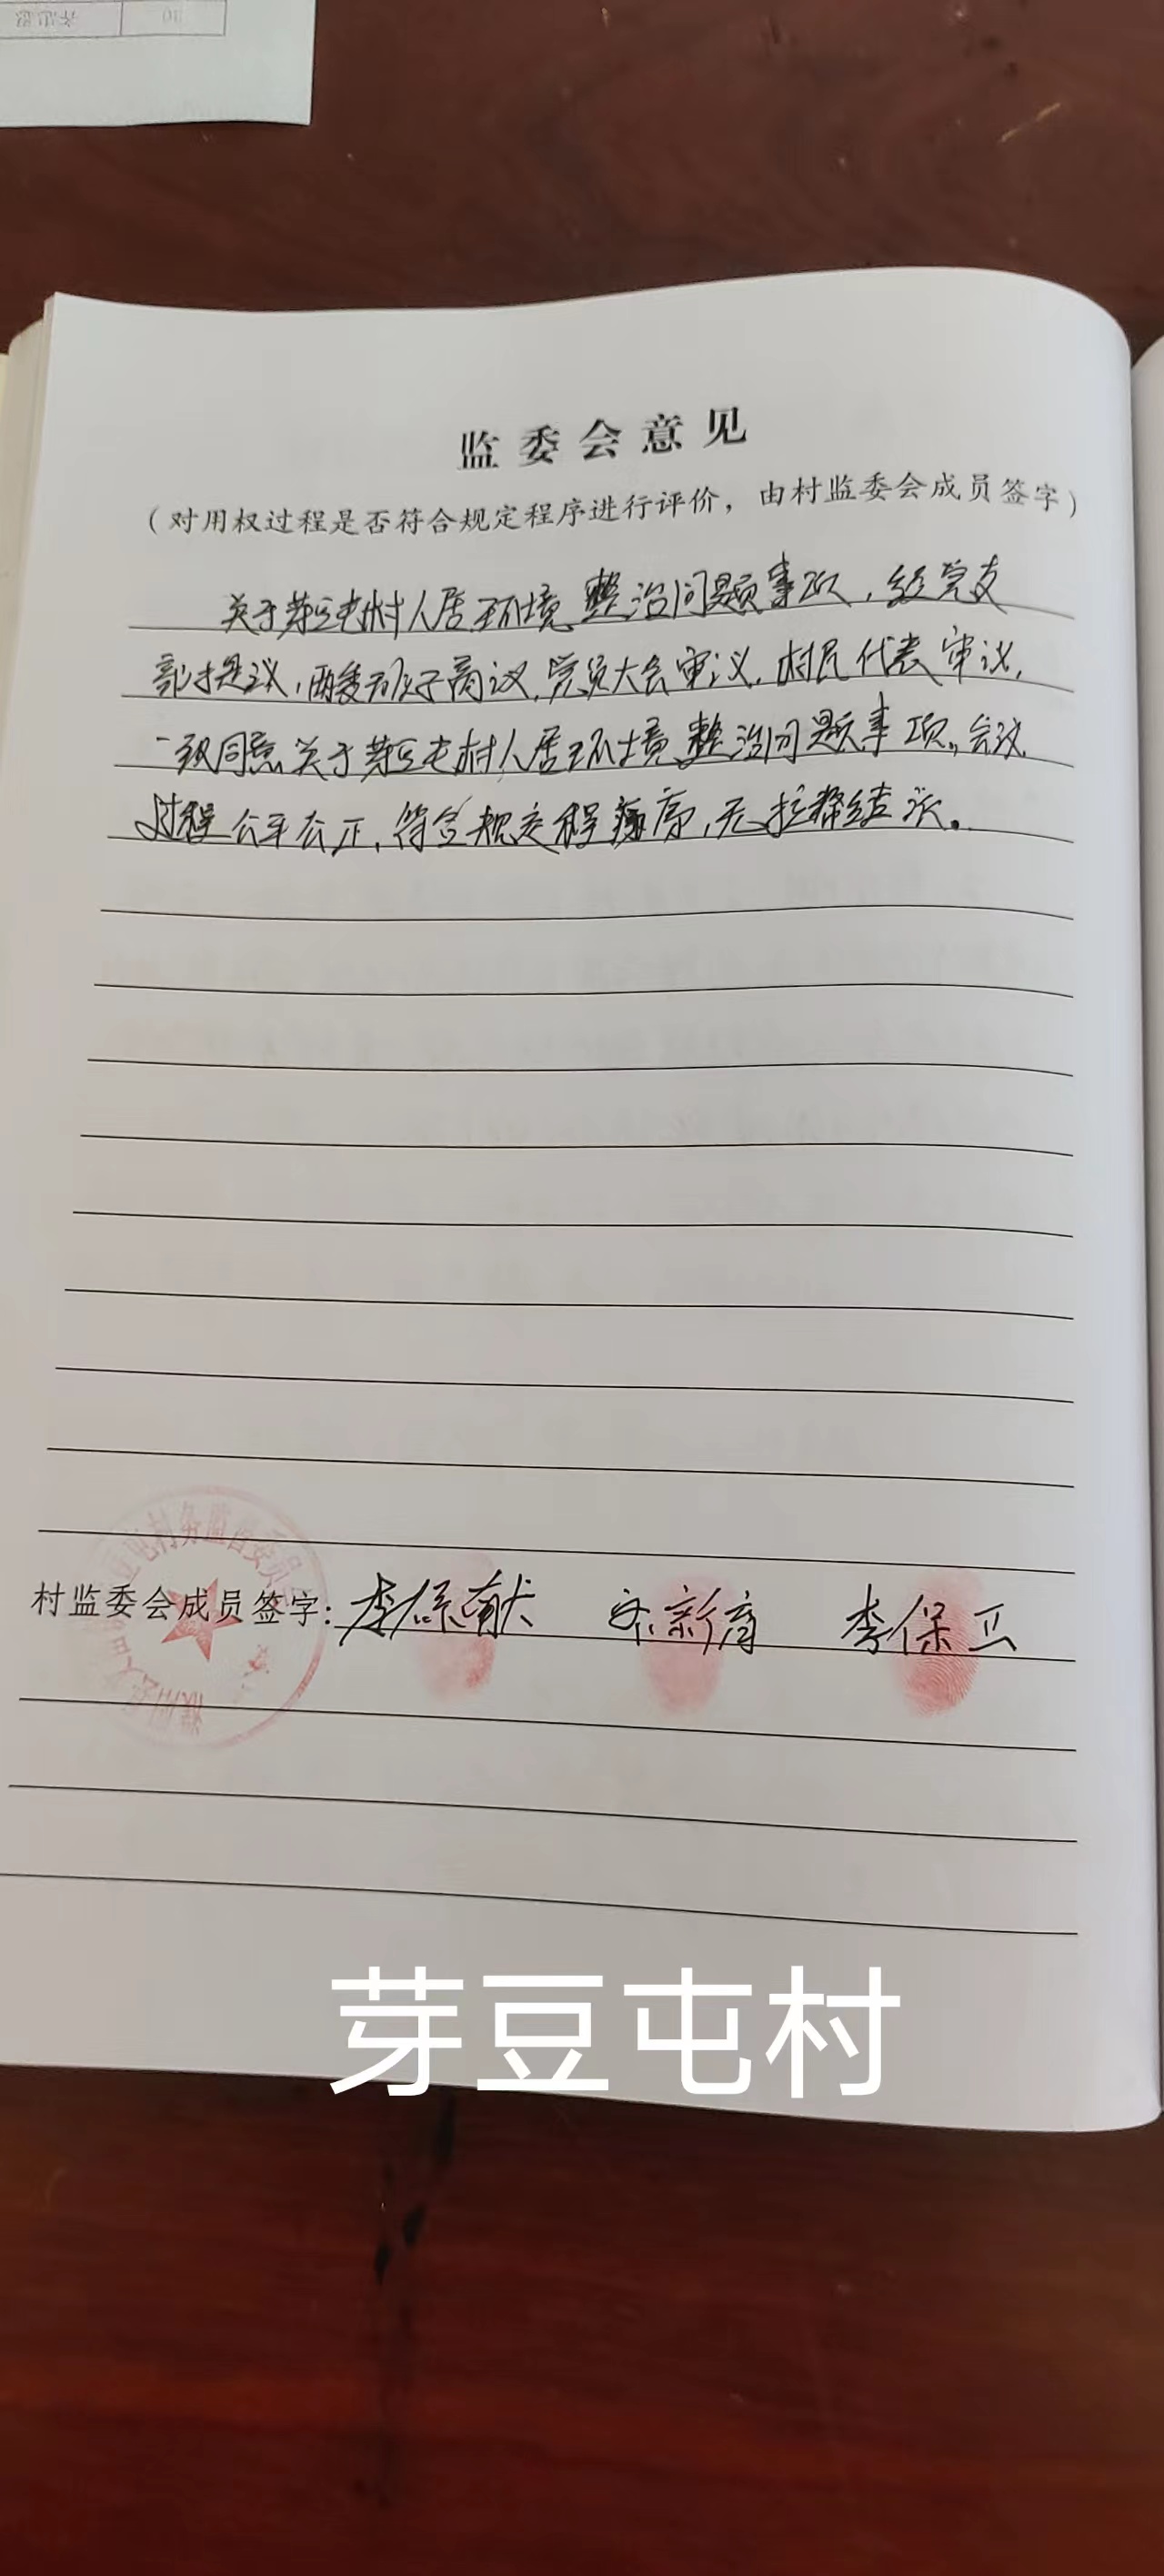 监委会意见
（对用权过程是否符合规定程序进行评价，由村监委会成员签字）
关于芽豆屯村人居环境整治问题事项，经党支
部提议，两委班子商议，党员大会审议，村民代表审议，
一致同意关于芽豆屯村人居环境整治问题事项。会议
过程公平公正，符合规定程序，无拉帮结派。
村务监督委员
村监委会成员签字：李保献 新育 李保卫
芽豆屯村